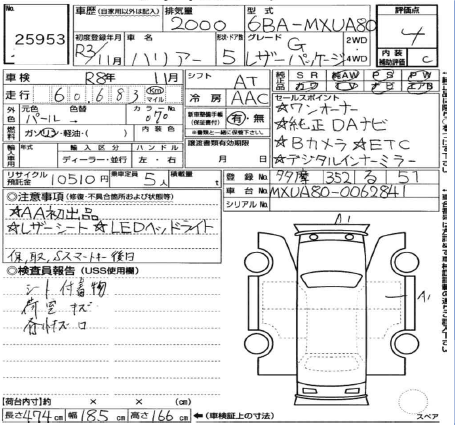 No. 25953
車歴 (自家用以外は記入) 排気量 2000 型式 6BA-MXUA80 評価点 4
初度登録年月 R3/11月 車名 ハリアー 形状・ドア数 5 グレード G レザーパッケージ 2WD・4WD 内装補助評価 C
車検 R8年 11月 シフト AT 純正装備 SR AW PS PW
走行 60,683 km マイル 冷房 AAC カワ TV ナビ エアB
外色 元色 パール 色替 カラーNo. 070 新車整備手帳(保証書付) 有・無 ※書類と一緒に保管下さい。
燃料 ガソリン・軽油・( ) 内装色
セールスポイント
☆ワンオーナー
☆純正DAナビ
☆Bカメラ☆ETC
☆デジタルインナーミラー
輸入車用 年式 輸入区分 ハンドル 譲渡書有効期限
ディーラー・並行 左・右 月 日
リサイクル預託金 10510円 乗車定員 5人 積載量 t 登録No. 多摩 352 る 51
車台No. MXUA80-0062841
シリアルNo.
◎注意事項 (修復・不具合箇所および状態等)
☆AA初出品
☆レザーシート ☆LEDヘッドライト
保,取,Sスマートキー後日
◎検査員報告 (USS使用欄)
シート付着物
荷室キズ
A1
A1
【荷台内寸】約 × × (cm)
長さ474cm 幅185cm 高さ166cm ←(車検証上の寸法)
スペア